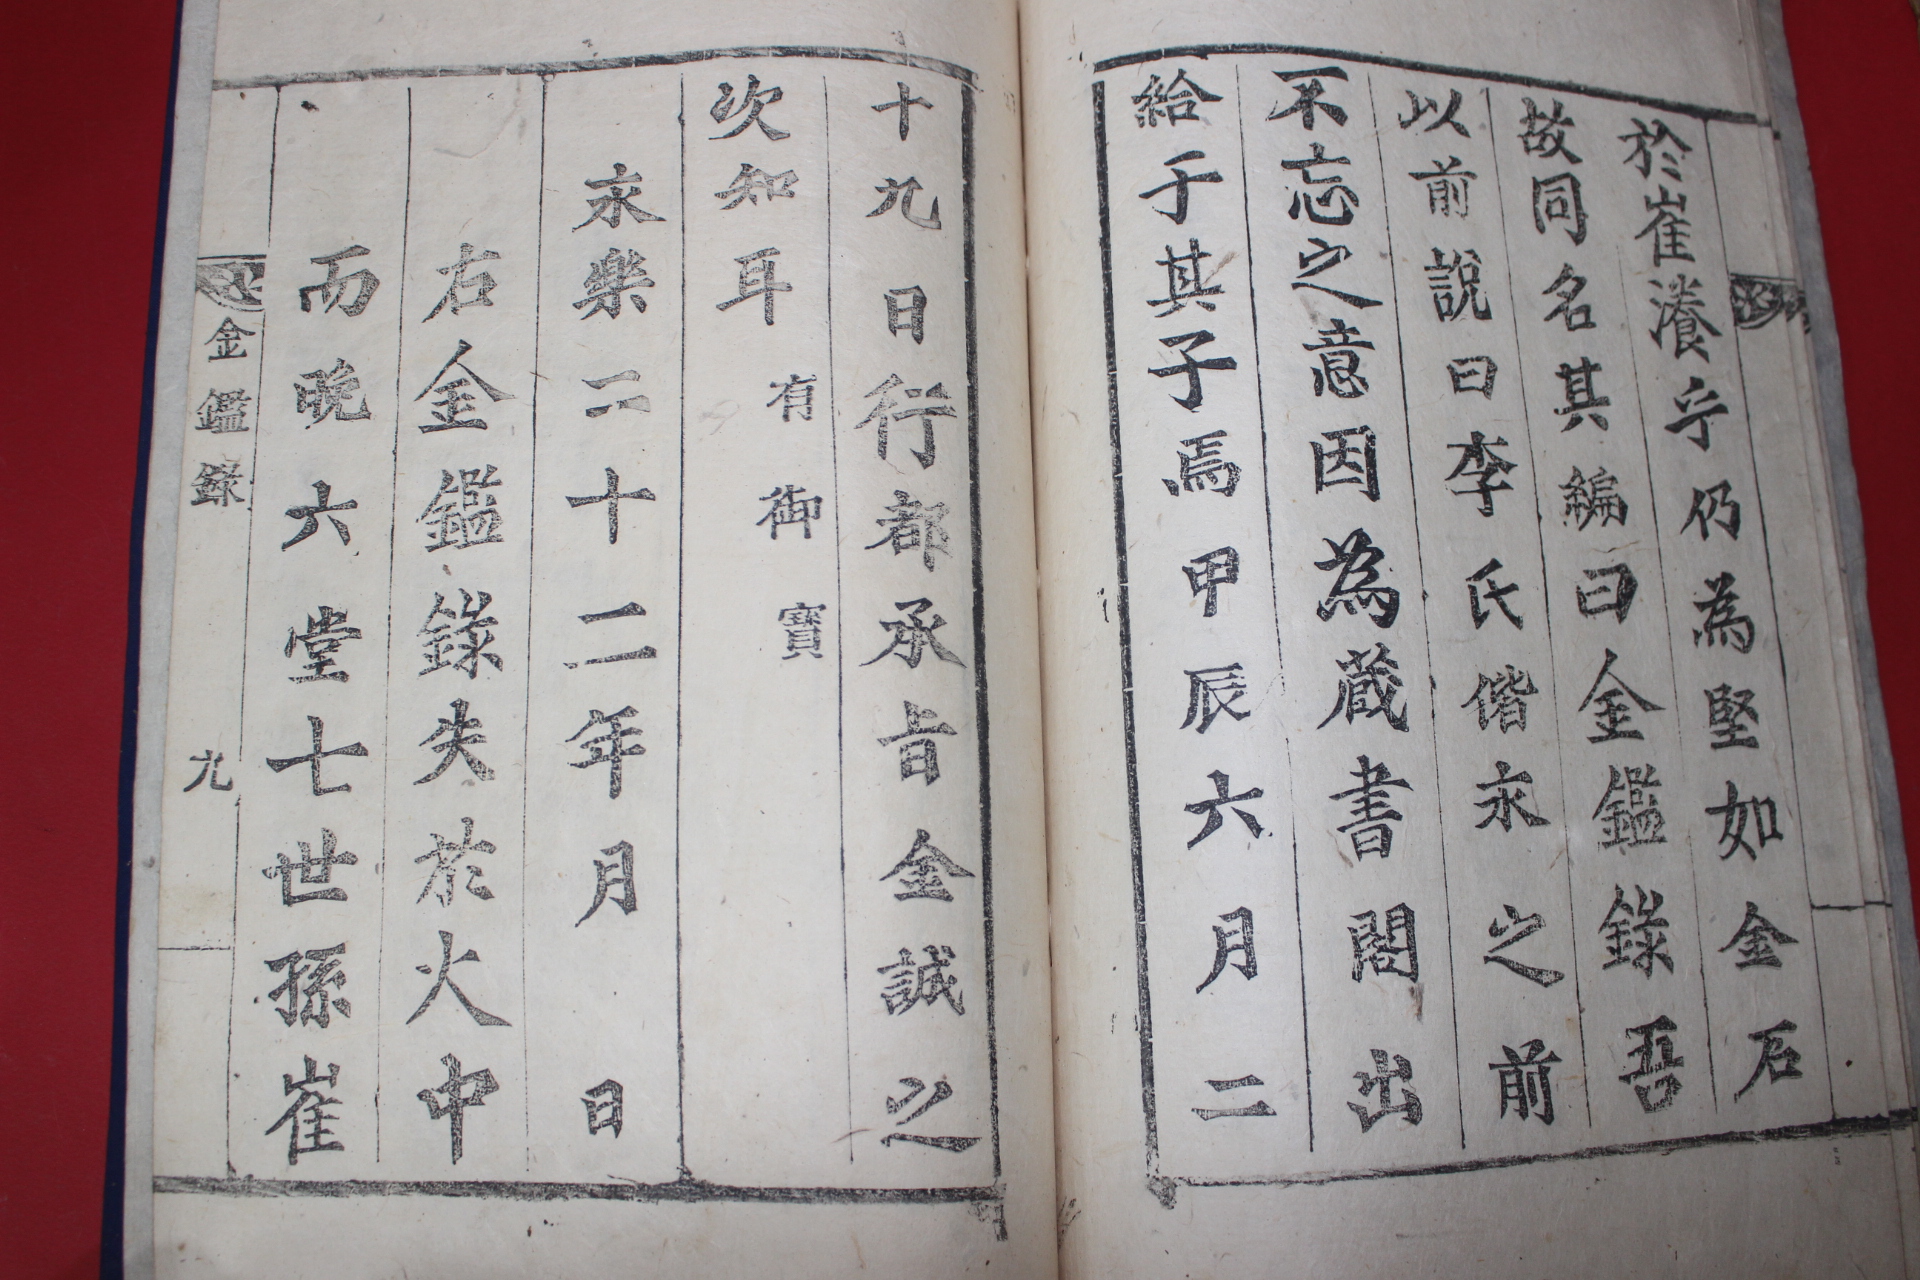 於崔濙乎仍為堅如金石
故同名其編曰金鑑錄吾
以前說曰李氏偕永之前
不忘之意因為蔵書閣出
給于其子焉甲辰六月二
十九日行都承旨金誠之
次知耳
有御寶
永樂二十二年月日
右金鑑錄失於火中
而晩六堂七世孫崔
金鑑錄
九